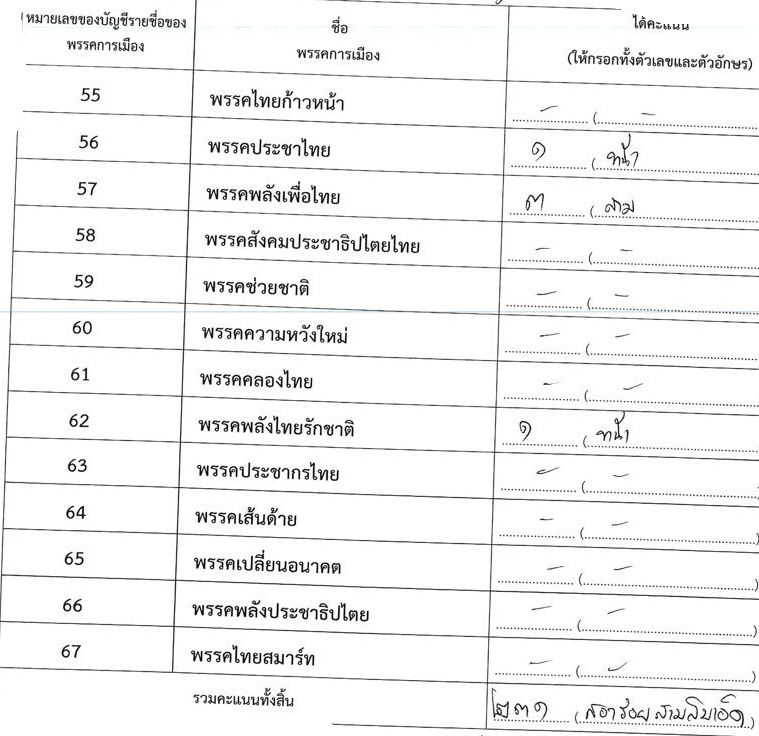 หมายเลขของบัญชีรายชื่อของ
พรรคการเมือง
ชื่อ
พรรคการเมือง
ได้คะแนน
(ให้กรอกทั้งตัวเลขและตัวอักษร)
55 พรรคไทยก้าวหน้า - ( -
56 พรรคประชาไทย ๑ (
57 พรรคพลังเพื่อไทย ๓ ( สาม
58 พรรคสังคมประชาธิปไตยไทย - ( -
59 พรรคช่วยชาติ - ( -
60 พรรคความหวังใหม่ - ( -
61 พรรคคลองไทย - ( -
62 พรรคพลังไทยรักชาติ ๑ (
63 พรรคประชากรไทย - ( - )
64 พรรคเส้นด้าย - ( - )
65 พรรคเปลี่ยนอนาคต - ( - )
66 พรรคพลังประชาธิปไตย - ( - )
67 พรรคไทยสมาร์ท - ( - )
รวมคะแนนทั้งสิ้น ๒๓๑ ( สองร้อยสามสิบเอ็ด )